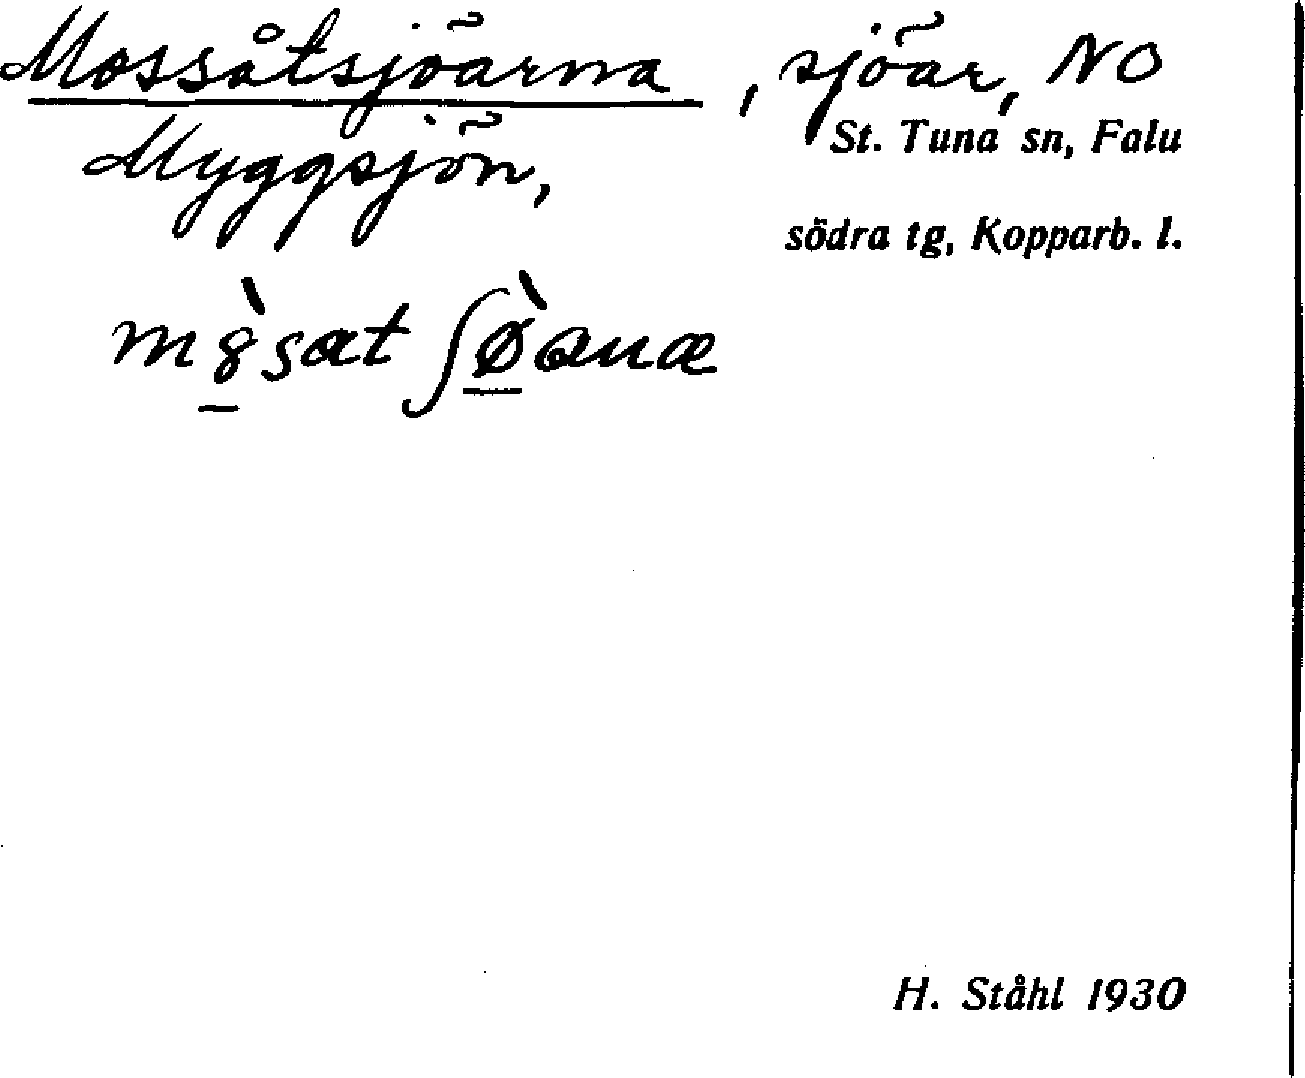 Mossåtsjöarna, sjöar, NO
St. Tuna sn, Falu
Myggsjön,
södra tg, Kopparb. l.
H. Ståhl 1930